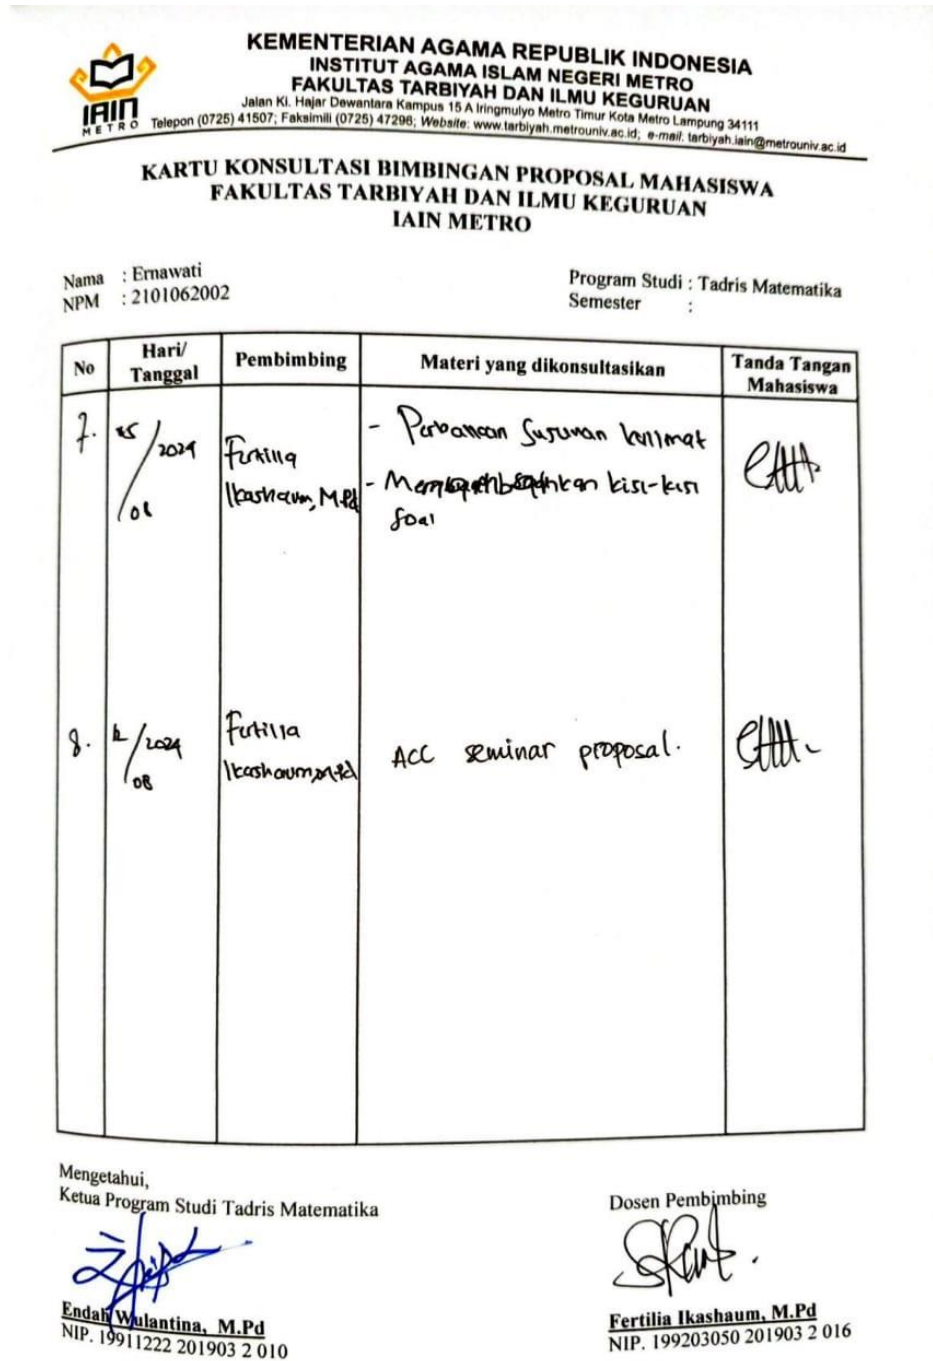 KEMENTERIAN AGAMA REPUBLIK INDONESIA
INSTITUT AGAMA ISLAM NEGERI METRO
FAKULTAS TARBIYAH DAN ILMU KEGURUAN
Jalan Ki. Hajar Dewantara Kampus 15 A Iringmulyo Metro Timur Kota Metro Lampung 34111
Telepon (0725) 41507; Faksimili (0725) 47296; Website: www.tarbiyah.metrouniv.ac.id; e-mail: tarbiyah.iain@metrouniv.ac.id
IAIN
METRO
KARTU KONSULTASI BIMBINGAN PROPOSAL MAHASISWA
FAKULTAS TARBIYAH DAN ILMU KEGURUAN
IAIN METRO
Nama : Ernawati
NPM : 2101062002
Program Studi : Tadris Matematika
Semester :
No
Hari/
Tanggal
Pembimbing
Materi yang dikonsultasikan
Tanda Tangan
Mahasiswa
7.
/2024
Fertilia
Ikashaum, M.Pd
- Susunan kalimat
- kisi-kisi
soal
8.
/2024
08
Fertilia
Ikashaum, M.Pd
ACC seminar proposal.
Mengetahui,
Ketua Program Studi Tadris Matematika
Endah Wulantina, M.Pd
NIP. 19911222 201903 2 010
Dosen Pembimbing
Fertilia Ikashaum, M.Pd
NIP. 199203050 201903 2 016